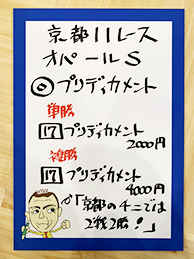 京都11レース
オパールS
◎プリディカメント
単勝
17プリディカメント
2000円
複勝
17プリディカメント
4000円
「京都のチニでは
2戦2勝!」